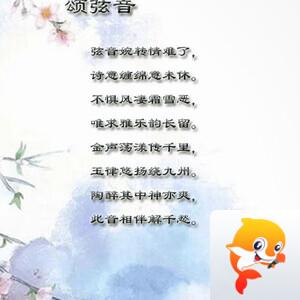 颂弦音
弦音婉转情难了，
诗意缠绵意未休。
不惧风凄霜雪恶，
唯求雅乐韵长留。
金声荡漾传千里，
玉律悠扬绕九州。
陶醉其中神亦爽，
此音相伴解千愁。